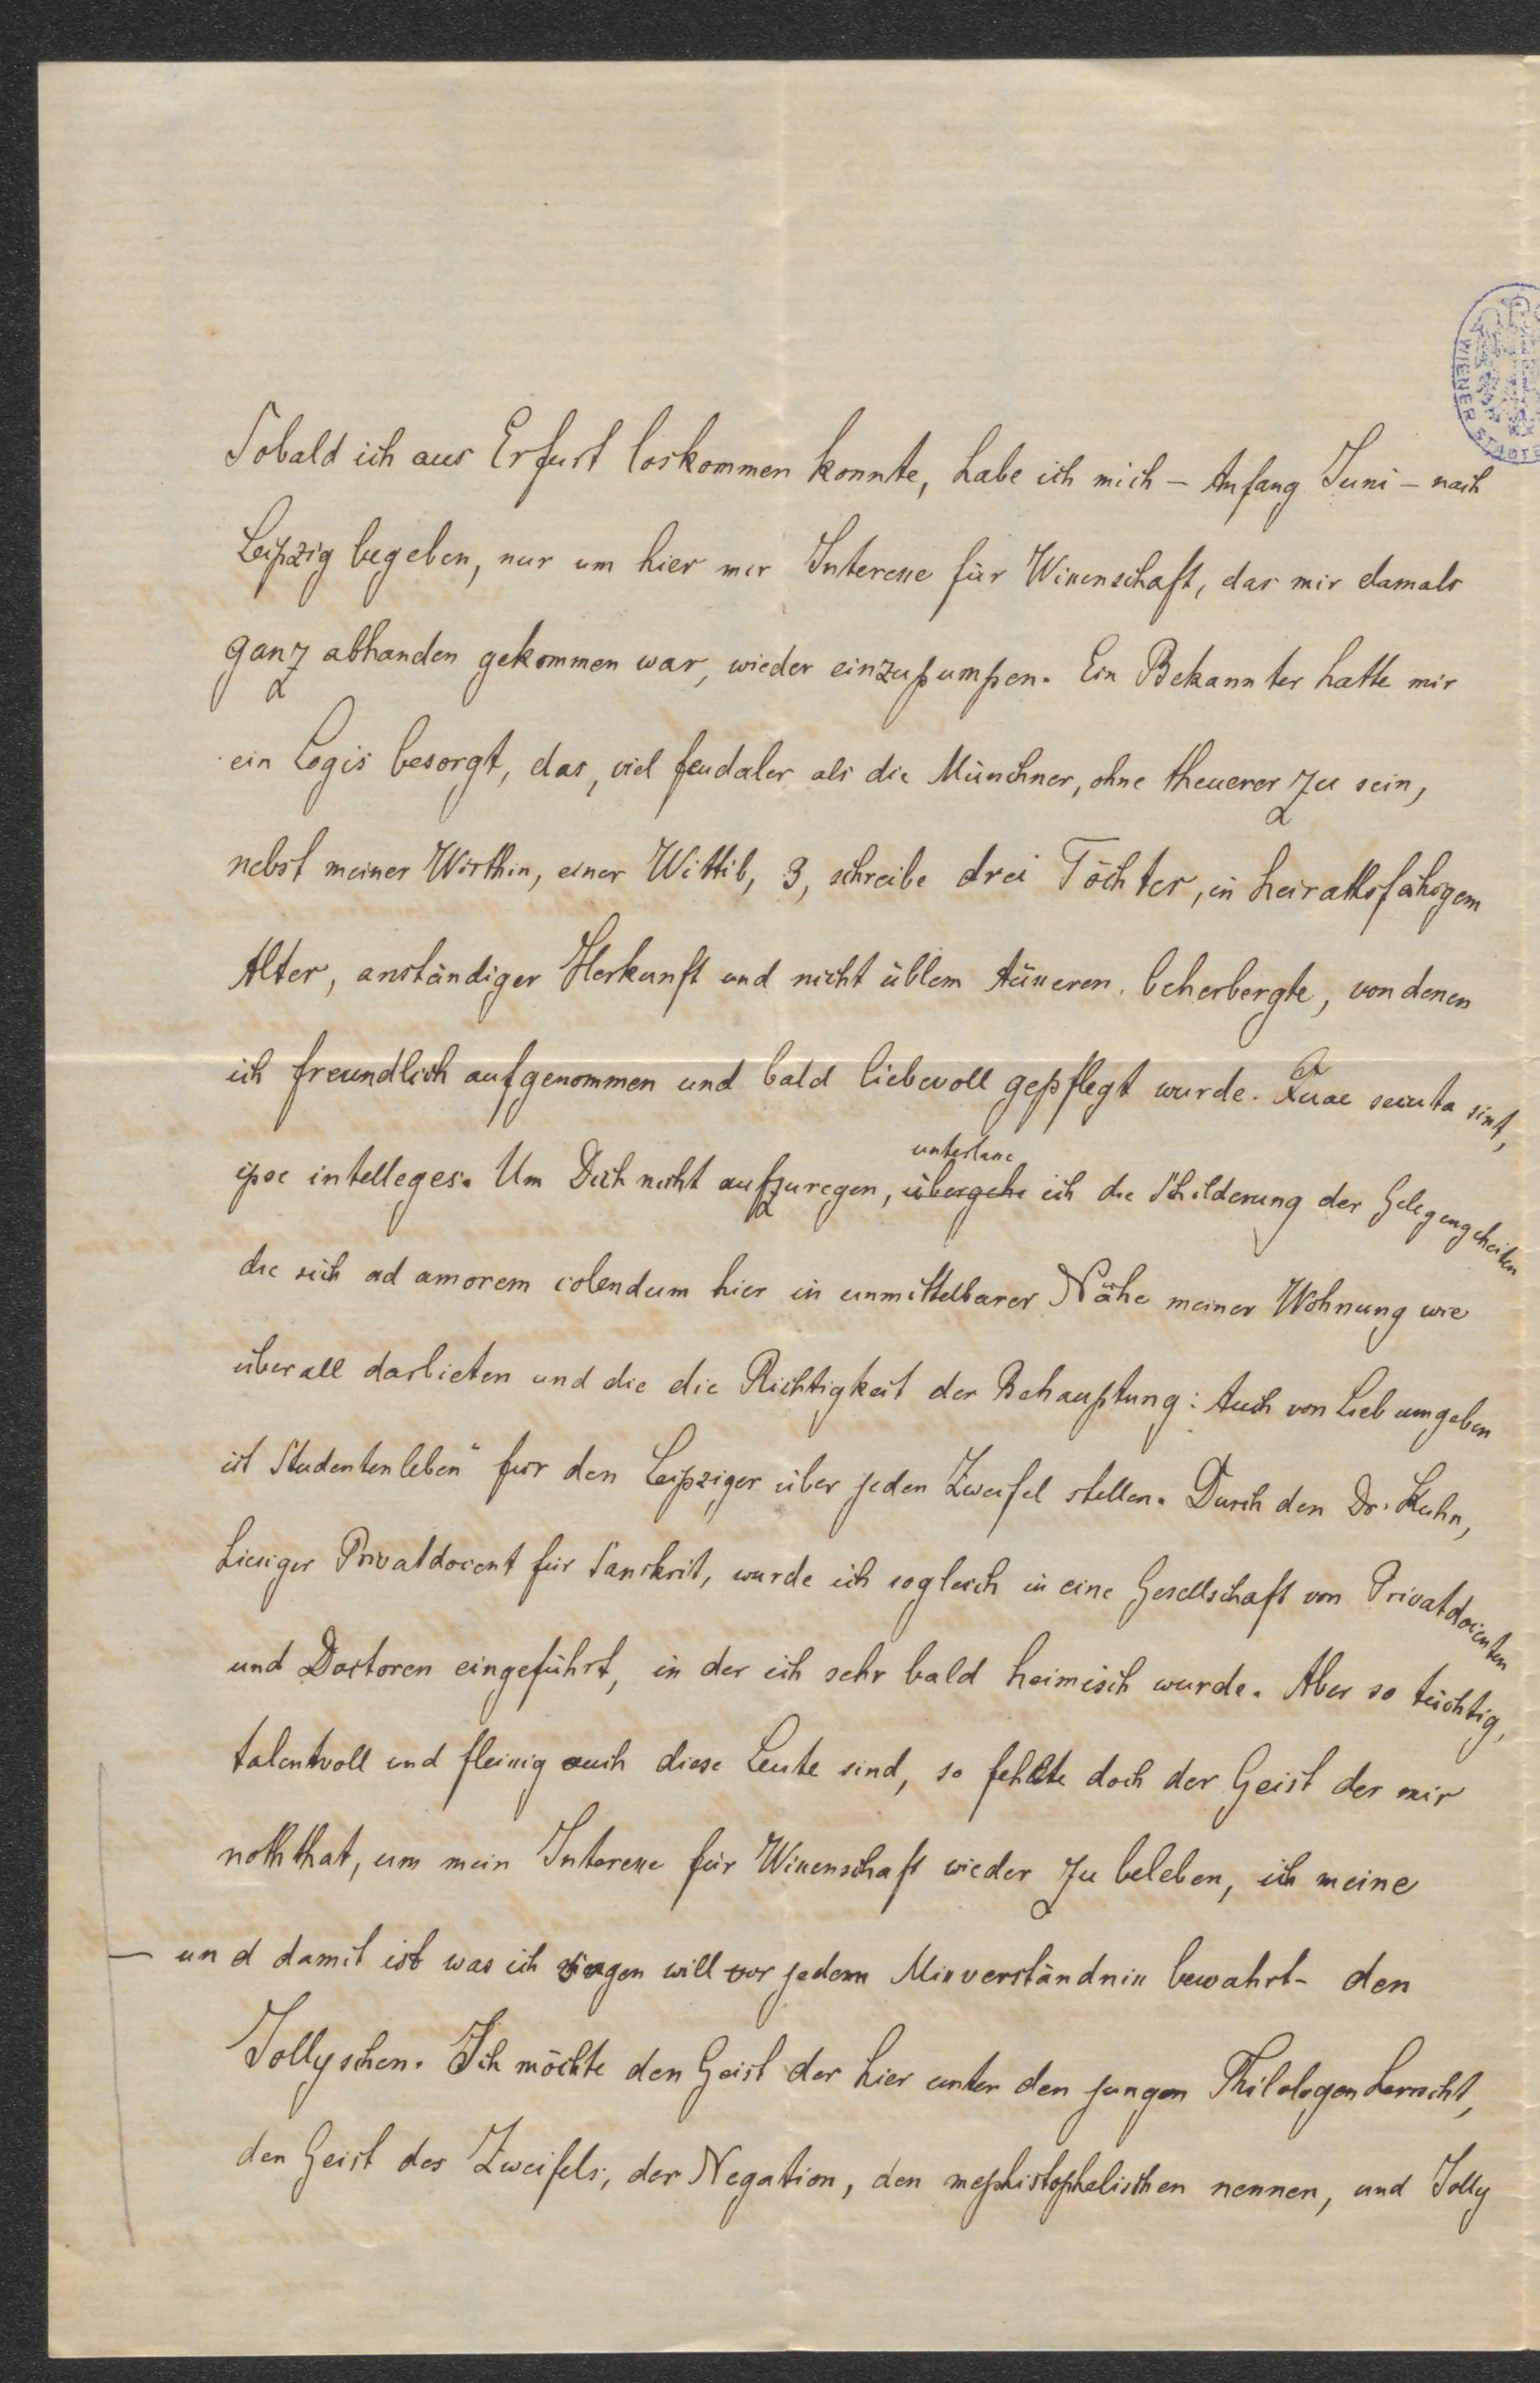 WIENER STADTB
Sobald ich aus Erfurt loskommen konnte, habe ich mich – Anfang Juni – nach
Leipzig begeben, nur um hier mir Interesse für Wissenschaft, das mir damals
ganz abhanden gekommen war, wieder einzupumpen. Ein Bekannter hatte mir
ein Logis besorgt, das, viel feudaler als die Münchner, ohne theuerer zu sein,
nebst meiner Wirthin, einer Wittib, 3, schreibe drei Töchter, in heirathsfähigem
Alter, anständiger Herkunft und nicht üblem Äusseren, beherbergte, von denen
ich freundlich aufgenommen und bald liebevoll gepflegt wurde. Quae secuta sint,
ipse intelleges. Um Dich nicht aufzuregen, übergehe unterlasse ich die Schilderung der Gelegengeheiten
die sich ad amorem colendum hier in unmittelbarer Nähe meiner Wohnung wie
überall darbieten und die die Richtigkeit der Behauptung: Auch von Lieb umgeben
ist Studentenleben" für den Leipziger über jeden Zweifel stellen. Durch den Dr. Kuhn,
hiesiger Privatdocent für Sanskrit, wurde ich sogleich in eine Gesellschaft von Privatdocenten
und Doctoren eingeführt, in der ich sehr bald heimisch wurde. Aber so tüchtig,
talentvoll und fleissig auch diese Leute sind, so fehlte doch der Geist der mir
noththat, um mein Interesse für Wissenschaft wieder zu beleben, ich meine
– und damit ist was ich sagen will vor jedem Missverständniss bewahrt – den
Jollyschen. Ich möchte den Geist der hier unter den jungen Philologen herrscht,
den Geist des Zweifels, der Negation, den mephistophelischen nennen, und Jolly